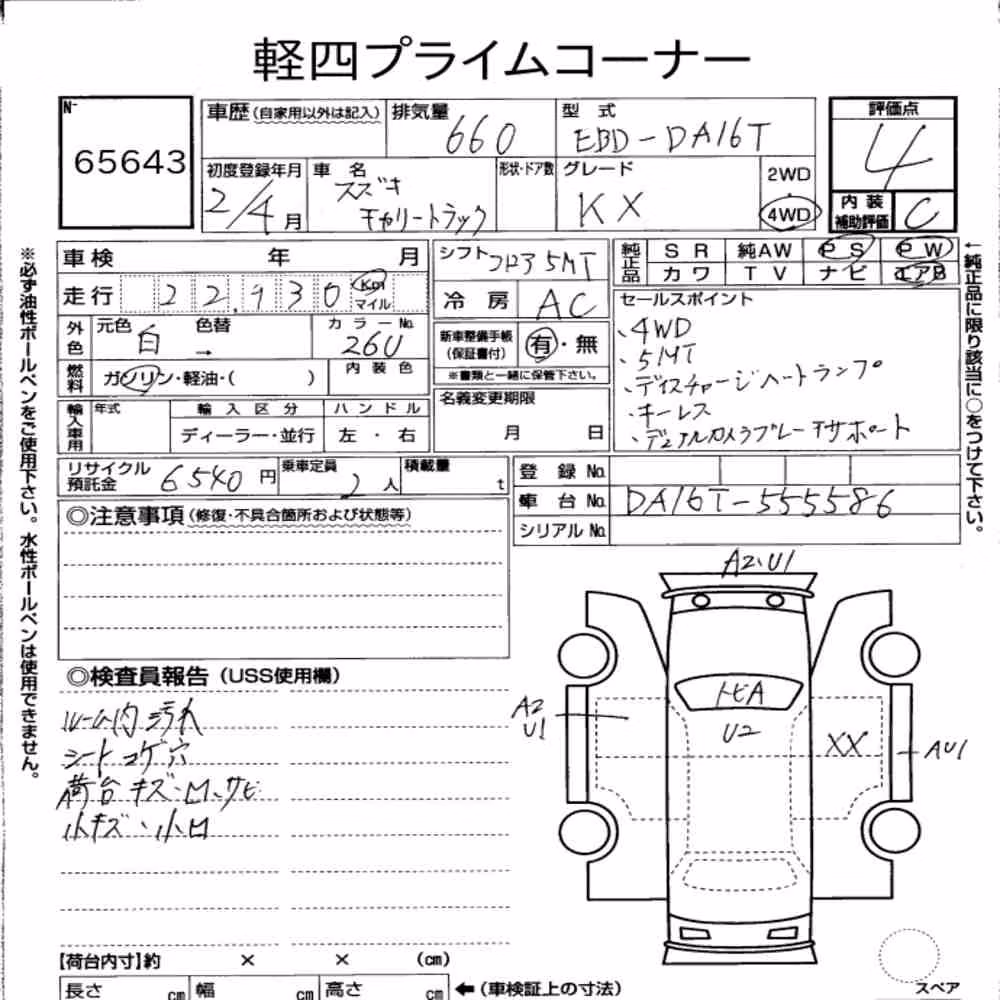 軽四プライムコーナー
No. 65643
車歴(自家用以外は記入) 排気量 660 型式 EBD-DA16T
初度登録年月 2/4月 車名 スズキ キャリートラック 形状・ドア数 グレード KX 2WD 4WD
評価点 4
内装補助評価 C
車検 年 月
走行 22,930 Km マイル
外色 元色 白 色替 → カラーNo. 26U
燃料 ガソリン・軽油・( ) 内装色
輸入車用 年式 輸入区分 ハンドル
ディーラー・並行 左・右
シフト フロア5MT
冷房 AC
新車整備手帳(保証書付) 有・無
※書類と一緒に保管下さい。
名義変更期限
月 日
純正品 SR 純AW PS PW
カワ TV ナビ エアB
セールスポイント
、4WD
、5MT
、ディスチャージヘートランプ
、キーレス
、デュアルカメラブレーキサポート
リサイクル預託金 6540円 乗車定員 2人 積載量 t
登録No.
車台No. DA16T-555586
シリアルNo.
◎注意事項(修復・不具合箇所および状態等)
◎検査員報告(USS使用欄)
ルーム内汚れ
シートコゲ穴
荷台キズ・凹、サビ
小キズ・小凹
A2、U1
A2
U1
トビA
U2
XX
AU1
【荷台内寸】約 × × (cm)
長さ cm 幅 cm 高さ cm ←(車検証上の寸法)
スペア
※必ず油性ボールペンをご使用下さい。水性ボールペンは使用できません。
←純正品に限り該当に○をつけて下さい。